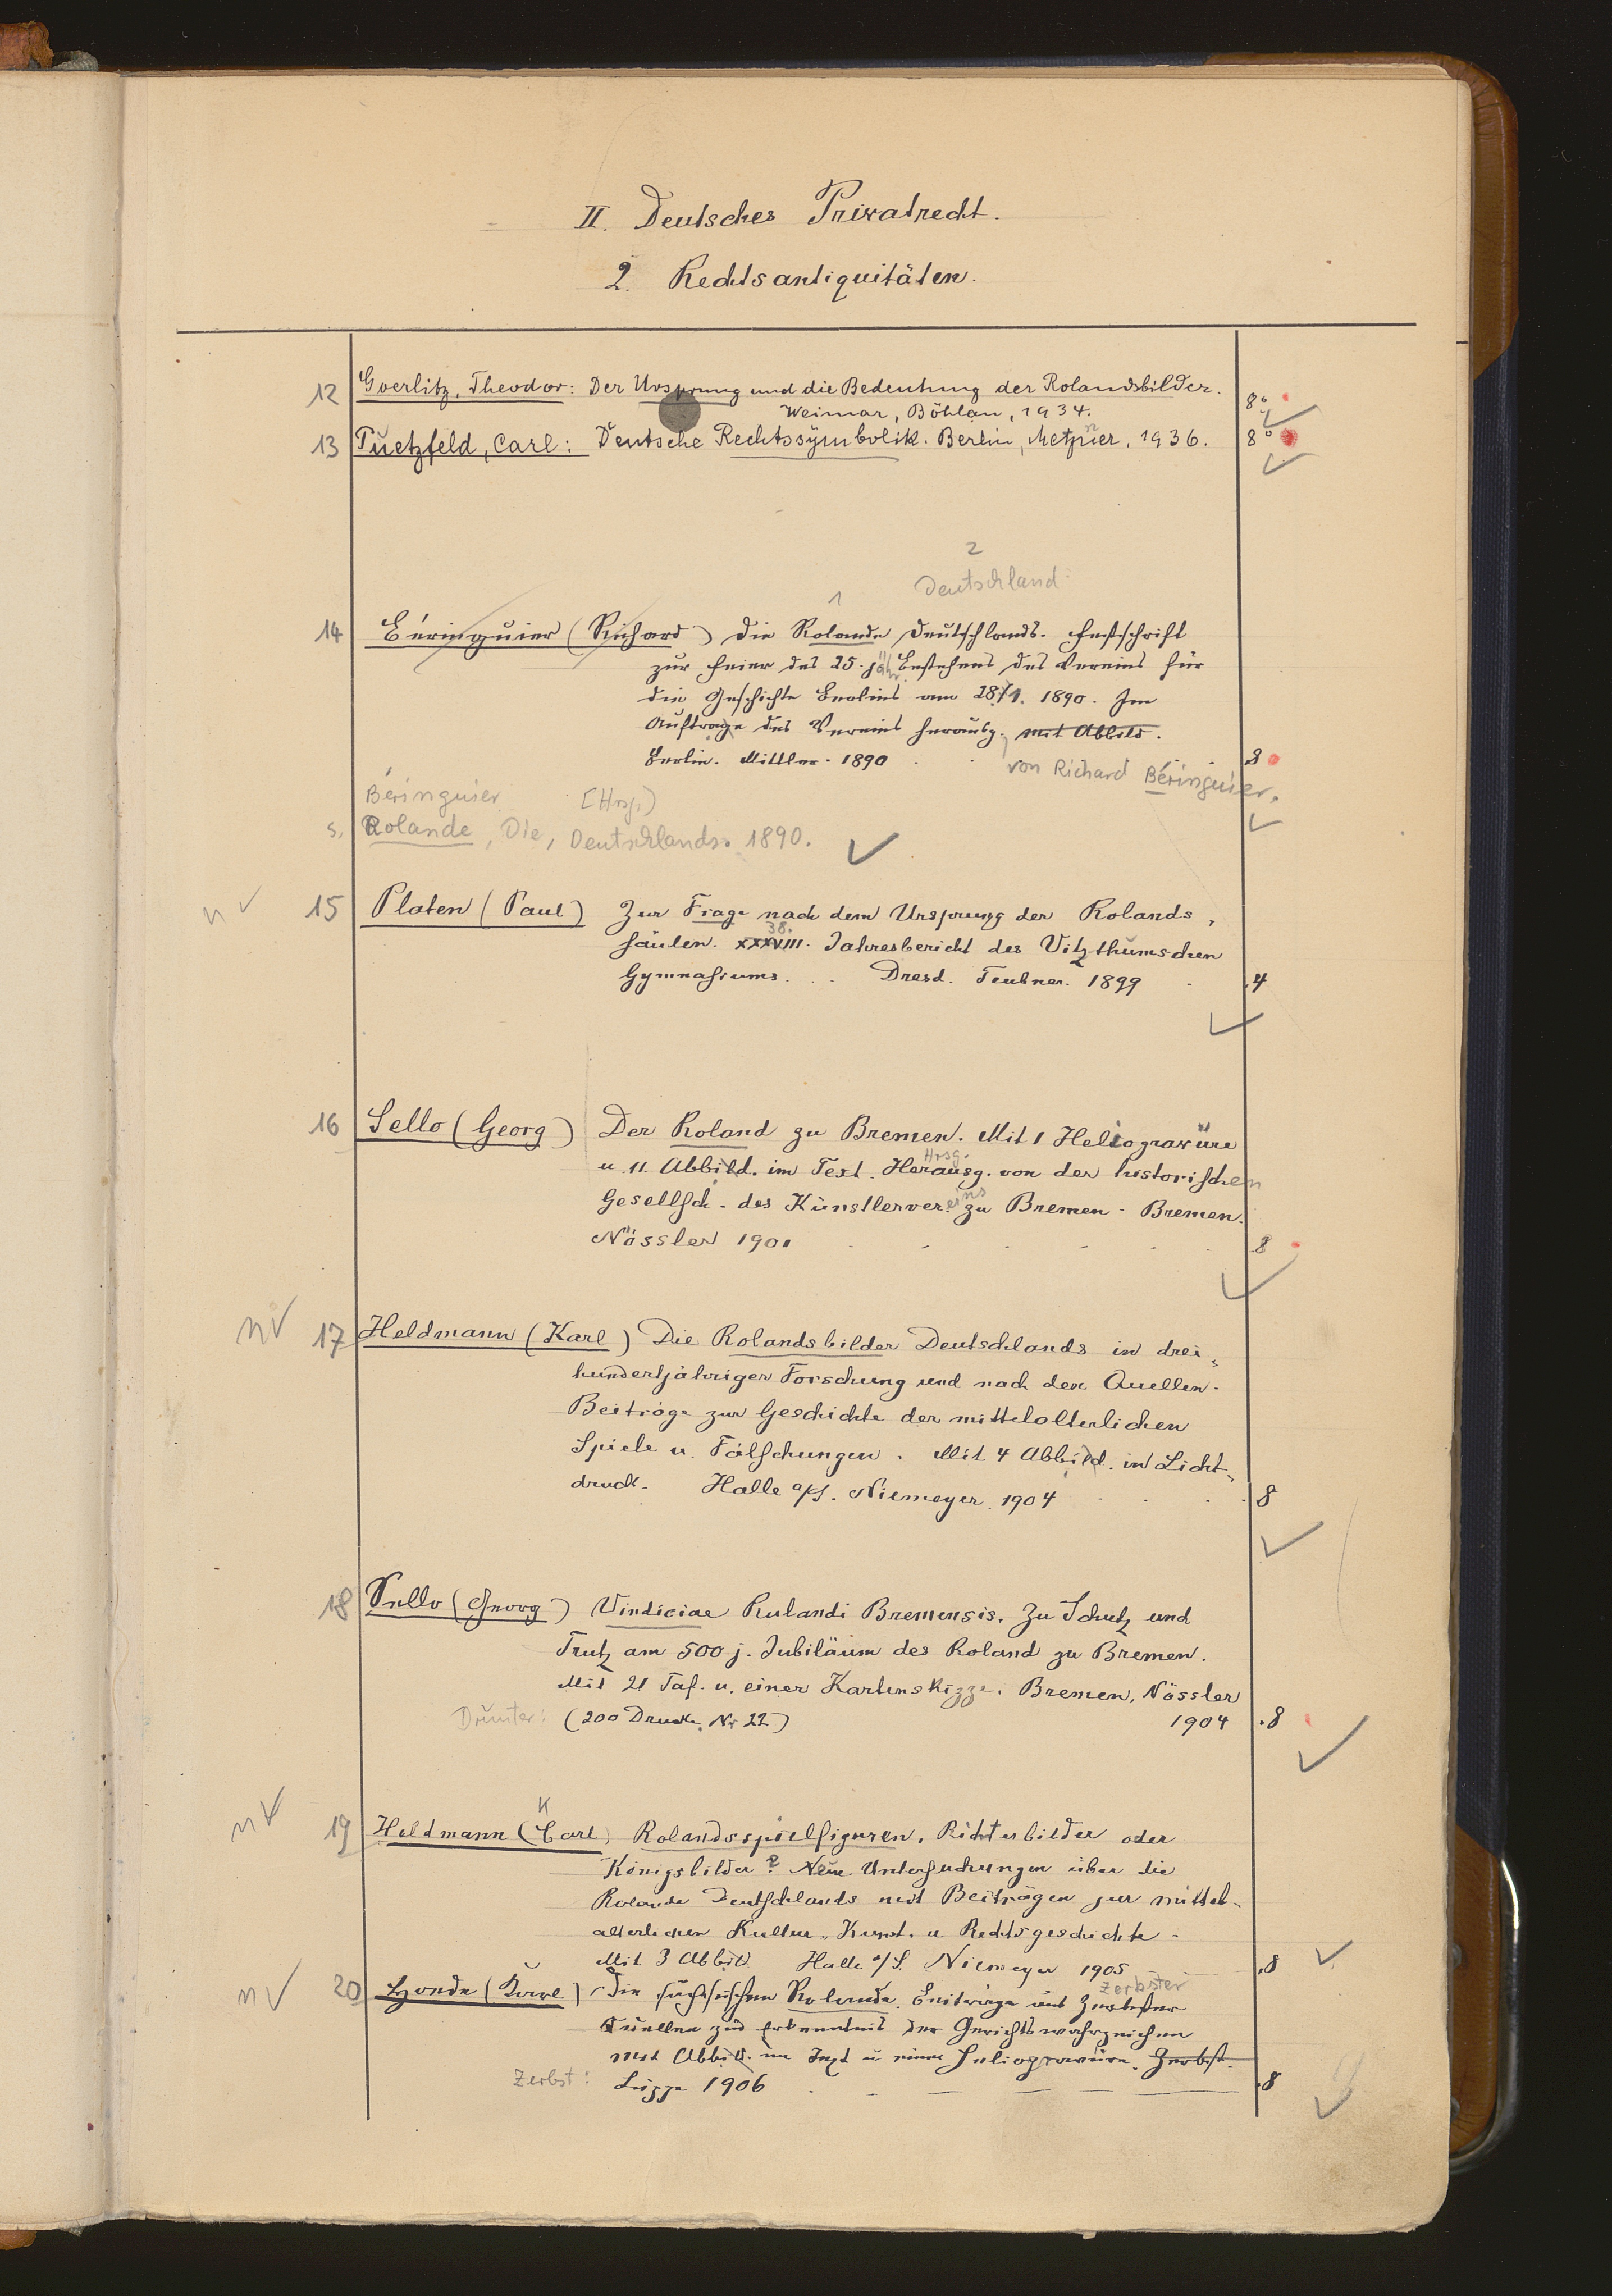 II. Deutsches Privatrecht.
2. Rechtsantiquitäten.
12 Goerlitz, Theodor: Der Ursprung und die Bedeutung der Rolandsbilder.
Weimar, Böhlau, 1934. 8°
13 Puetzfeld, Carl: Deutsche Rechtssymbolik. Berlin, Metzner, 1936. 8°
2
Deutschland
1
14 Béringuier (Richard) Die Rolande Deutschlands. Festschrift
zur Feier des 25. jähr. Bestehens des Vereins für
die Geschichte Berlins am 28/1. 1890. Im
Auftrage des Vereins herausg. mit Abbild.
Berlin. Mittler. 1890 8
von Richard Béringuier.
Béringuier [Hrsg.)
s. Rolande, Die, Deutschlands. 1890.
n 15 Platen (Paul) Zur Frage nach dem Ursprung der Rolands,
38.
säulen. XXXVIII. Jahresbericht des Vitzthumschen
Gymnasiums. Dresd. Teubner. 1899 4
16 Sello (Georg) Der Roland zu Bremen. Mit 1 Heliogravüre
Hrsg.
u. 11 Abbild. im Text. Herausg. von der historischen
Gesellsch. des Künstlervereins zu Bremen - Bremen.
Nössler 1901 8
n 17 Heldmann (Karl) Die Rolandsbilder Deutschlands in drei-
hundertjähriger Forschung und nach den Quellen.
Beiträge zur Geschichte der mittelalterlichen
Spiele u. Fälschungen. Mit 4 Abbild. in Licht-
druck. Halle a/S. Niemeyer 1904 8
18 Sello (Georg) Vindiciae Rulandi Bremensis. Zu Schutz und
Trutz am 500 j. Jubiläum des Roland zu Bremen.
Mit 21 Taf. u. einer Kartenskizze. Bremen, Nössler
Drunter: (200 Drucke, Nr 22) 1904 8
K
n 19 Heldmann (Carl) Rolandsspielfiguren, Richterbilder oder
Königsbilder? Neue Untersuchungen über die
Rolande Deutschlands mit Beiträgen zur mittel-
alterlichen Kultur-, Kunst- u. Rechtsgeschichte.
Mit 3 Abbild. Halle a/S. Niemeyer 1905 8
Zerbster
n 20 Hoede (Karl) Die sächsischen Rolande. Beiträge aus Zerbster
Quellen zur Erkenntnis der Gerichtswahrzeichen
mit Abbild. im Text u. einer Heliogravüre. Zerbst.
Zerbst: Luppe 1906 8